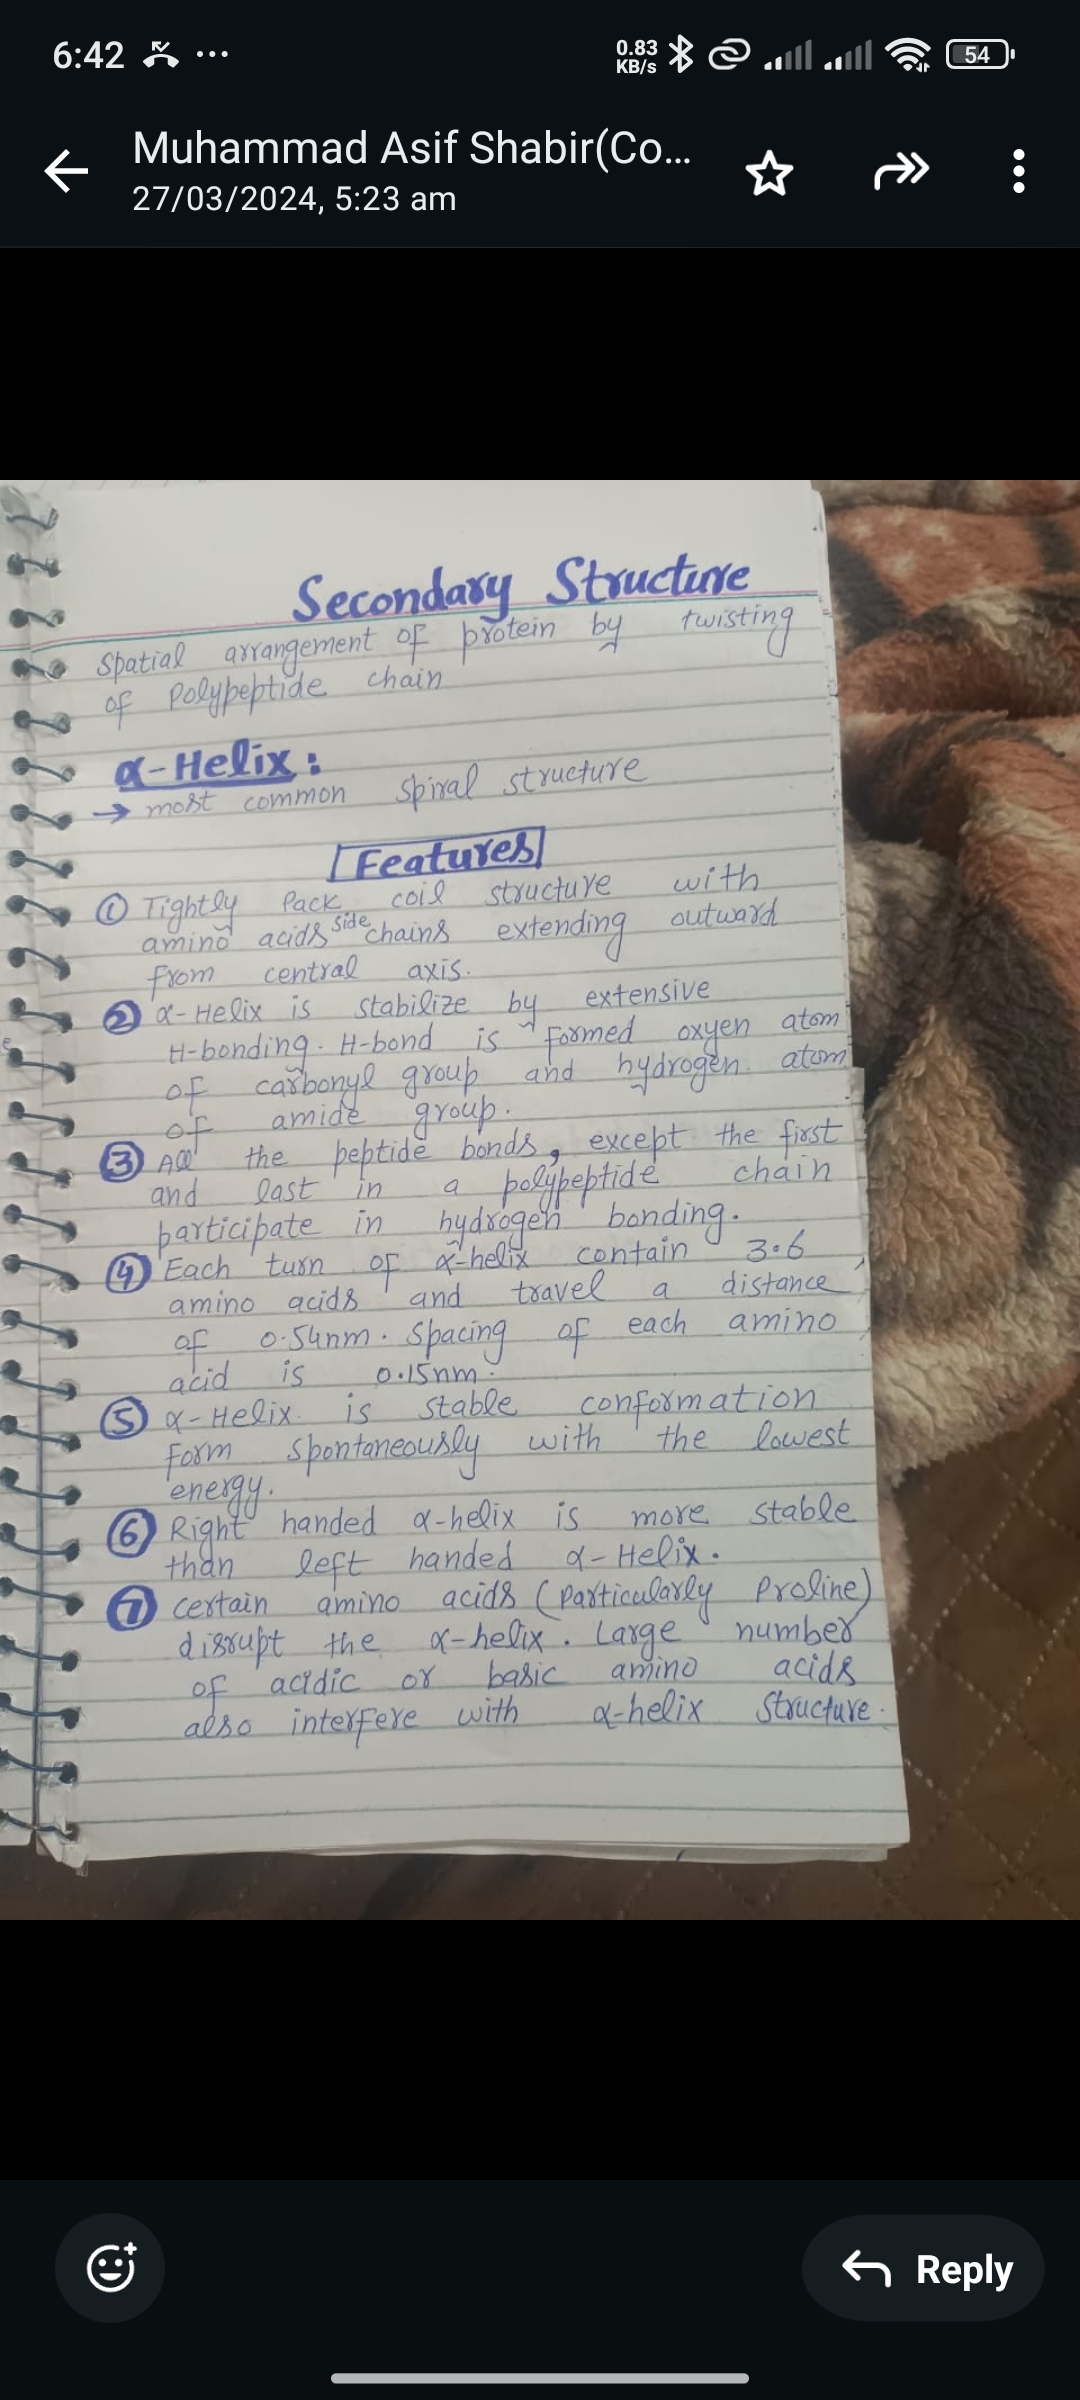 6:42 ...
0.83
KB/s
54
Muhammad Asif Shabir(Co...
27/03/2024, 5:23 am
Secondary Structure
Spatial arrangement of protein by twisting
of Polypeptide chain
α-Helix:
→ most common spiral structure
Features
① Tightly Pack coil structure with
amino acids side chains extending outward
from central axis.
② α-Helix is stabilize by extensive
H-bonding. H-bond is formed oxyen atom
of carbonyl group and hydrogen atom
of amide group.
③ All the peptide bonds, except the first
and last in a polypeptide chain
participate in hydrogen bonding.
④ Each turn of α-helix contain 3.6
amino acids and travel a distance
of 0.54nm. Spacing of each amino
acid is 0.15nm.
⑤ α-Helix is stable conformation
form spontaneously with the lowest
energy.
⑥ Right handed α-helix is more stable
than left handed α-Helix.
⑦ certain amino acids (Particularly Proline)
disrupt the α-helix. Large number
of acidic or basic amino acids
also interfere with α-helix structure.
Reply